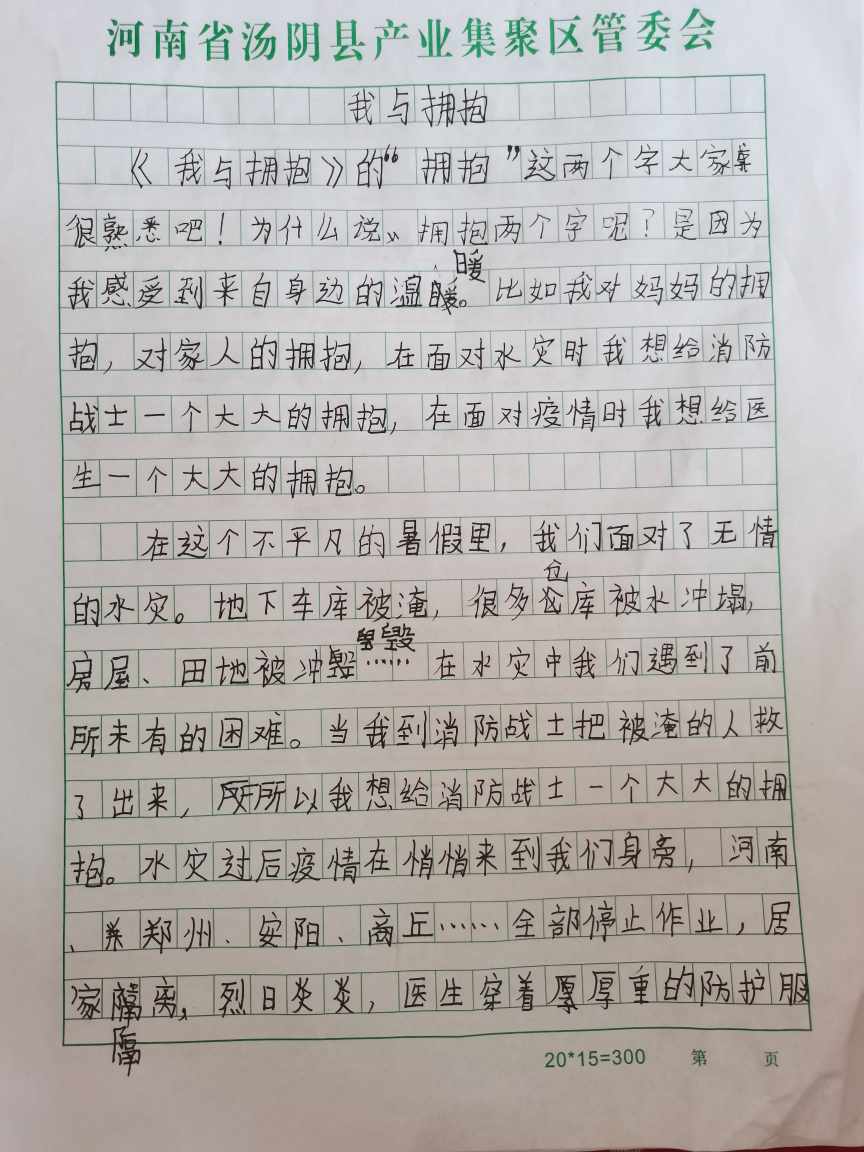 河南省汤阴县产业集聚区管委会
我与拥抱
《我与拥抱》的“拥抱”这两个字大家
很熟悉吧！为什么说拥抱两个字呢？是因为
暖
我感受到来自身边的温暖。比如我对妈妈的拥
抱，对家人的拥抱，在面对水灾时我想给消防
战士一个大大的拥抱，在面对疫情时我想给医
生一个大大的拥抱。
在这个不平凡的暑假里，我们面对了无情
仓
的水灾。地下车库被淹，很多仓库被水冲塌，
毁
房屋、田地被冲毁……在水灾中我们遇到了前
所未有的困难。当我到消防战士把被淹的人救
了出来，所以我想给消防战士一个大大的拥
抱。水灾过后疫情在悄悄来到我们身旁，河南
、郑州、安阳、商丘……全部停止作业，居
家隔离，烈日炎炎，医生穿着厚厚重的防护服
隔
20*15=300 第 页